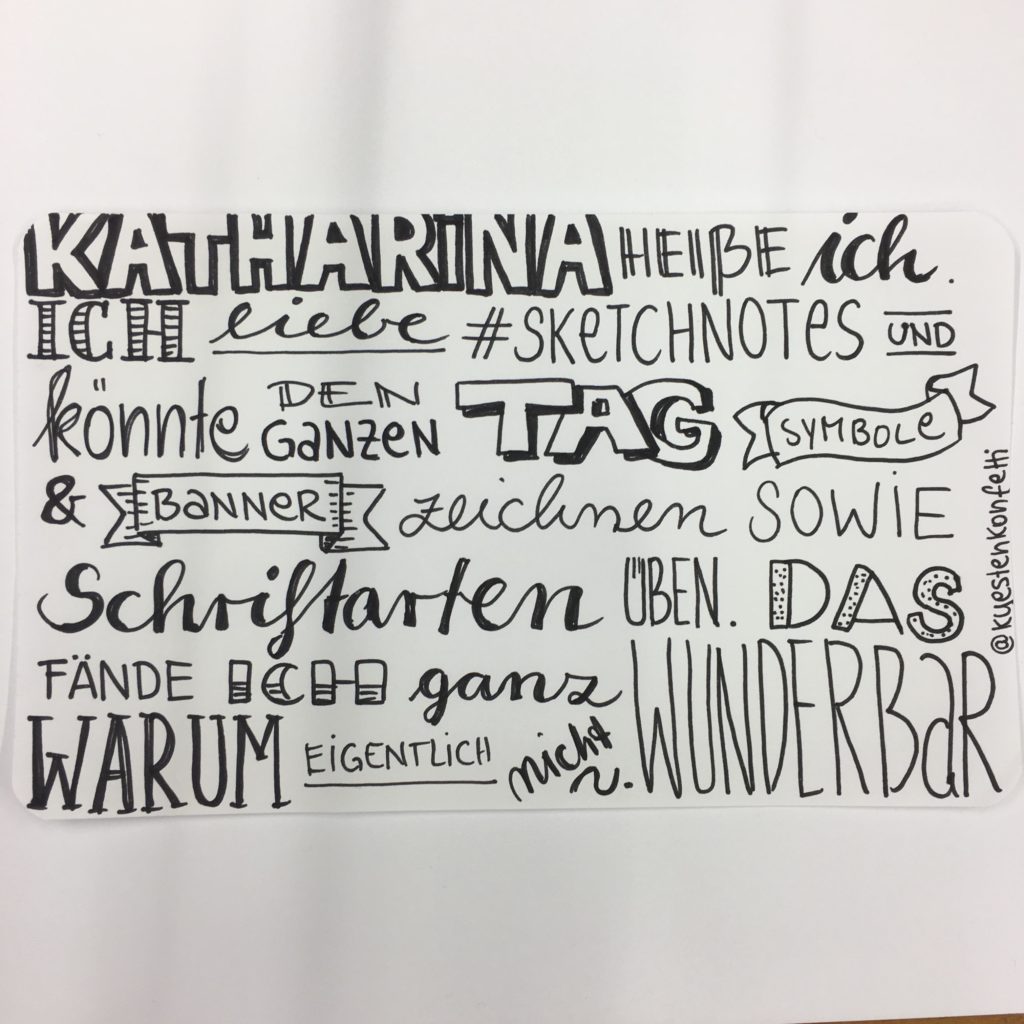 KATHARINA HEIßE ich.
ICH liebe #SKETCHNOTES UND
könnte DEN GANZEN TAG SYMBOLE
& BANNER zeichnen SOWIE
Schriftarten ÜBEN. DAS
FÄNDE ICH ganz WUNDERBAR
WARUM EIGENTLICH nicht.
@kuestenkonfetti